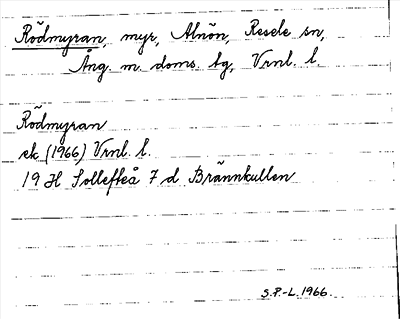 Rödmyran, myr, Alnön, Resele sn,
Ång. m. doms. tg, Vrnl. l.
Rödmyran
ek (1966) Vrnl. l.
19 H Sollefteå 7 d Brännkullen
S.P.-L. 1966.